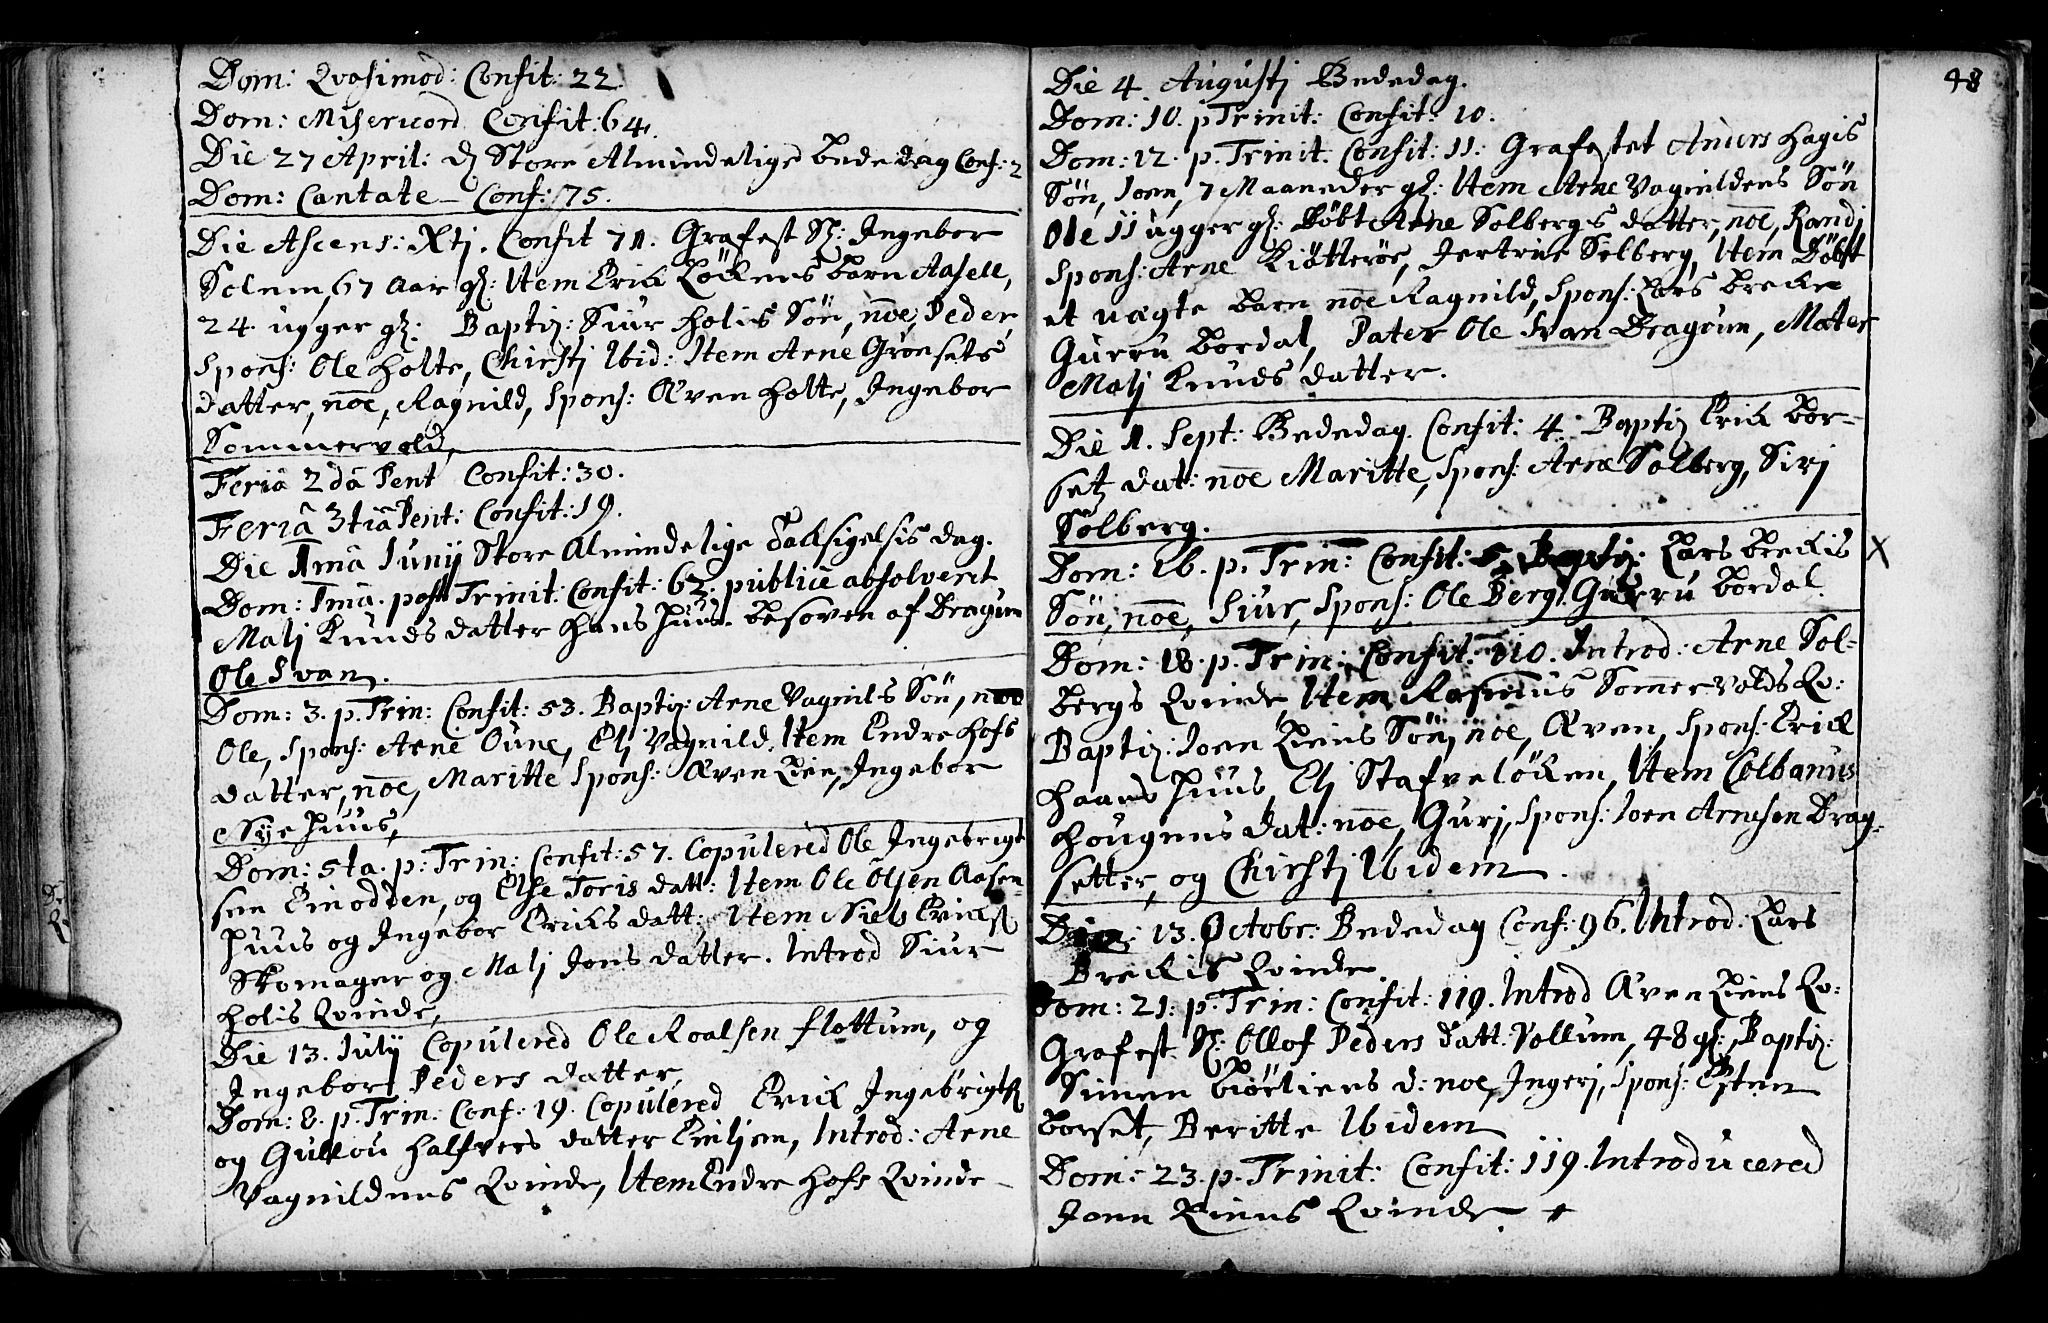 Dom: Qvasimod: Confit: 22
Dom: Misericord Confit: 64.
Die 27 April: dz Store Almindelige bededag Conf: 2
Dom: Cantate – Conf: 75.
Die Ascens: Xtj. Confit 71. Grafest Sl: Ingebor
Solem, 67 Aar gl: Item Erick Löckens barn Aasell,
24 ugger gl: Baptiz: Siur Holis Sön, noe, Peder,
Spons: Ole Holte, Chirstj Ibid: Item Arne Grönsets
datter, noe, Ragnild, Spons: Æven Holte, Ingebor
Sommervold,
Feriâ 2dâ Pent Confit: 30.
Feriâ 3tiâ Pent: Confit: 19.
Die 1mâ Junij Store Almindelige Tacksigelsis dag.
Dom: 1mâ. post Trinit: Confit: 63. publicè absolverit
Malj Knuds datter Hans Huus. besoven af Dragun
Ole Svan.
Dom: 3. p. Trin: Confit: 53. Baptiz: Arne Vagnils Sön, noe
Ole, Spons: Arne Oune, Elj Vagnild, Item Endre Hofs
datter, noe, Maritte Spons: Æven Lien, Ingebor
Nye Huus,
Dom: 5ta. p: Trin: Confit: 57. Copulered Ole Ingebrigt
sen Enodden, og Else Toris datt: Item Ole Olsen Aasen-
Huus og Ingebor Ericks datt: Item Niels Ericks:
Skomager og Malj Jons datter. Introd Siur
Holis Qvinde,
Die 13. Julij Copulered Ole Roalsen Flottum, og
Ingebor Peders datter,
Dom: 8. p. Trin: Conf: 19. Copulered Erick Ingebrigts:
og Gullou Halfvers datter Enljen, Introd: Arne
Vagnildens Qvinde, Item Endre Hofs Qvinde –
48
Die 4 Augustj Bededag.
Dom: 10. p Trinit: Confit: 10.
Dom: 12. p. Trinit: Confit: 11: Grafestet Anders Hagis
Sön, Joen, 7 Maaneder gl: Item Arne Vagnildens Sön
Ole 11 ugger gl: Döbt Arne Solbergs datter, noe, Randj
Spons: Arne Kiötteröe, Jertrue Solberg, Item Döbt
et uægte barn noe Ragnild, Spons: Lars brecke
Gurru bordal, Pater Ole Svan Dragoun, Mater
Malj Knuds datter.
Die 1. Sept: Bededag. Confit: 4. Baptiz Erick bor-
setz dat: noe Maritte, Spons: Arne Solberg, Sirj
Sölberg.
Dom: 16. p. Trin: Confit: 5. Baptiz: Lars breckis X
Sön, noe, Siur, Spons: Ole Berg, Gurru bordal.
Dom: 18. p. Trin: Confit: 110. Introd: Arne Sol-
bergs Qvinde, Item Rasmus Somervolds Qv:
Baptiz: Joen Liens Sön, noe, Æven, Spons: Erick
Haans Huus, Elj Stafvelöcken, Item Colbanus
Hougens dat: noe, Gurj, Spons: Joen Arnesen Drag-
setter, og Chirstj Ibidem.
Die: 13. Octobr: Bededag Conf: 96. Introd: Lars
Breckis Qvinde.
Dom: 21: p. Trin: Confit: 119. Introd Æven Liens Qv:
Grafest Sl: Ollof Peders datt. Vollum, 48 gl: Baptiz:
Simen biörliens d: noe, Ingerj, Spons: Esten
borset, Beritte Ibidem
Dom: 23. p. Trinit: Confit: 119. Introducered
Jonn Liens Qvinde.